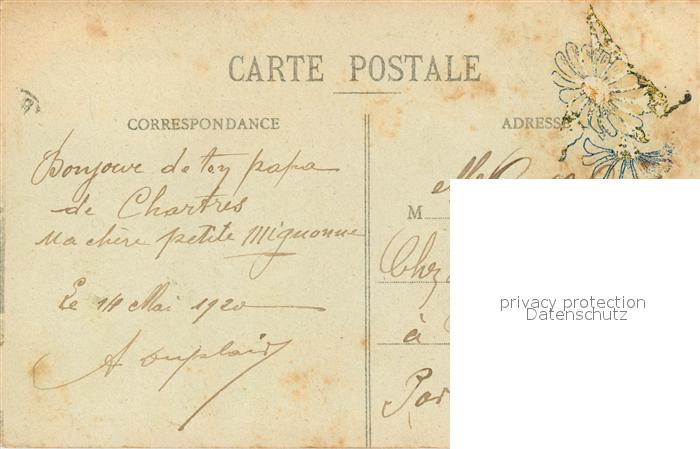 CARTE POSTALE
CORRESPONDANCE
ADRESSE
Bonjour de ton papa
de Chartres
Ma chère petite Mignonne
Le 14 Mai 1920
A
M elle
Chez
à
privacy protection
Datenschutz